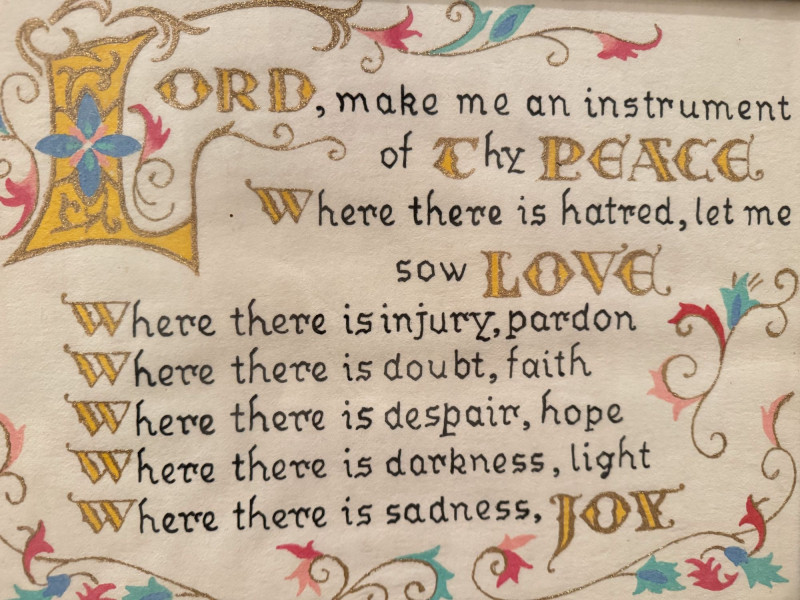 LORD, make me an instrument
of Thy PEACE
Where there is hatred, let me
sow LOVE
Where there is injury, pardon
Where there is doubt, faith
Where there is despair, hope
Where there is darkness, light
Where there is sadness, JOY